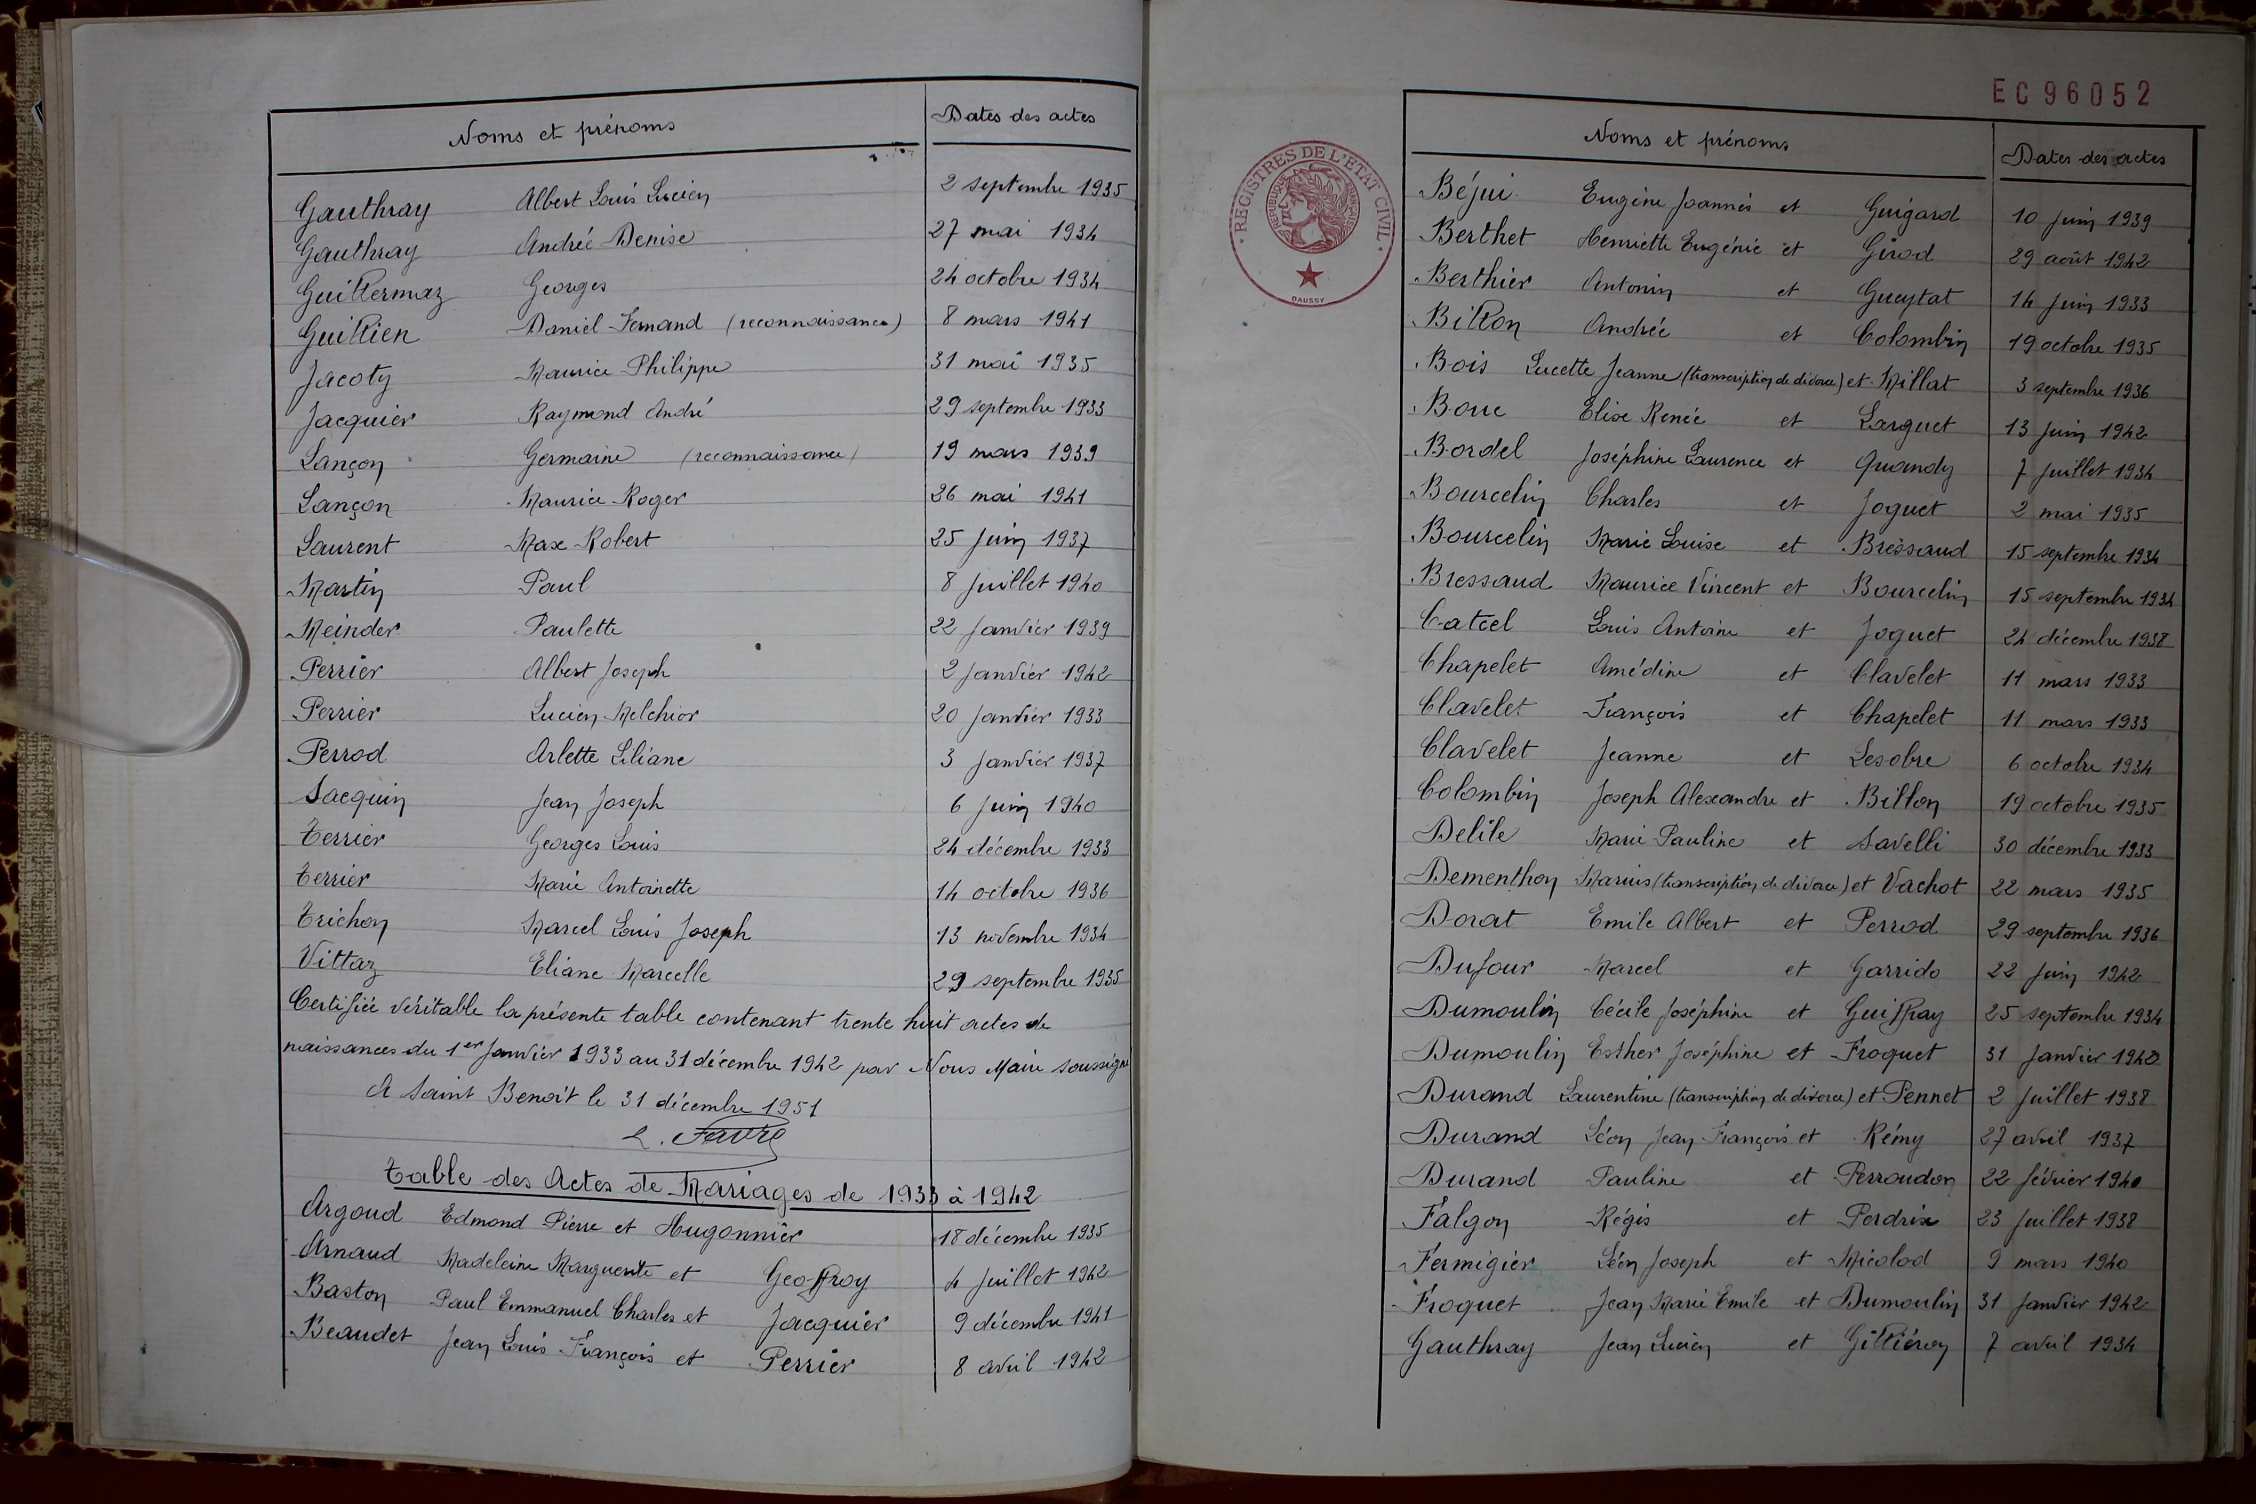 Noms et prénoms Dates des actes
Gauthray Albert Louis Lucien 2 septembre 1935
Gauthray Andrée Denise 27 mai 1934
Guillermaz Georges 24 octobre 1934
Guillien Daniel Fernand (reconnaissance) 8 mars 1941
Jacoty Maurice Philippe 31 mai 1935
Jacquier Raymond André 29 septembre 1933
Lançon Germaine (reconnaissance) 19 mars 1939
Lançon Maurice Roger 26 mai 1941
Laurent Max Robert 25 juin 1937
Martin Paul 8 juillet 1940
Meinder Paulette 22 janvier 1939
Perrier Albert Joseph 2 janvier 1942
Perrier Lucien Melchior 20 janvier 1933
Perrod Arlette Liliane 3 janvier 1937
Jacquin Jean Joseph 6 juin 1940
Terrier Georges Louis 24 décembre 1933
Terrier Marie Antoinette 14 octobre 1936
Trichon Marcel Louis Joseph 13 novembre 1934
Vittaz Eliane Marcelle 29 septembre 1935
Certifiée véritable la présente table contenant trente huit actes de
naissances du 1er janvier 1933 au 31 décembre 1942 par Nous Maire soussigné
A Saint Benoît le 31 décembre 1951
L. Favre
Table des Actes de Mariages de 1933 à 1942
Argoud Edmond Pierre et Hugonnier 18 décembre 1935
Arnaud Madeleine Marguerite et Geoffroy 4 juillet 1942
Baston Paul Emmanuel Charles et Jacquier 9 décembre 1941
Beaudet Jean Louis François et Perrier 8 avril 1942
EC96052
REGISTRES DE L'ETAT CIVIL
REPUBLIQUE FRANÇAISE
DAUSSY
Noms et prénoms Dates des actes
Béjui Eugène Joannès et Guigard 10 juin 1939
Berthet Henriette Eugénie et Girod 29 août 1942
Berthier Antonin et Gueytat 14 juin 1933
Billon Andrée et Colombin 19 octobre 1935
Bois Lucette Jeanne (transcription de divorce) et Millat 3 septembre 1936
Bouc Elise Renée et Larguet 13 juin 1942
Bordel Joséphine Laurence et Quandy 7 juillet 1934
Bourcelin Charles et Joguet 2 mai 1935
Bourcelin Marie Louise et Bressaud 15 septembre 1934
Bressaud Maurice Vincent et Bourcelin 15 septembre 1934
Catcel Louis Antoine et Joguet 24 décembre 1938
Chapelet Amédine et Clavelet 11 mars 1933
Clavelet François et Chapelet 11 mars 1933
Clavelet Jeanne et Lesobre 6 octobre 1934
Colombin Joseph Alexandre et Billon 19 octobre 1935
Delile Marie Pauline et Savelli 30 décembre 1933
Dementhon Marius (transcription de divorce) et Vachot 22 mars 1935
Dorat Emile Albert et Perrod 29 septembre 1936
Dufour Marcel et Garrido 22 juin 1942
Dumoulin Cécile Joséphine et Guiffray 25 septembre 1934
Dumoulin Esther Joséphine et Froquet 31 janvier 1942
Durand Laurentine (transcription de divorce) et Pennet 2 juillet 1938
Durand Léon Jean François et Rémy 27 avril 1937
Durand Pauline et Perroudon 22 février 1940
Falgon Régis et Perdrix 23 juillet 1938
Fermigier Léon Joseph et Nicolod 9 mars 1940
Froquet Jean Marie Emile et Dumoulin 31 janvier 1942
Gauthray Jean Lucien et Gilliéron 7 avril 1934